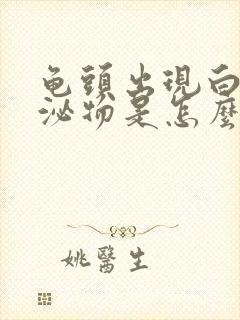 龟頭出現白
泌物是怎麼
姚醫生